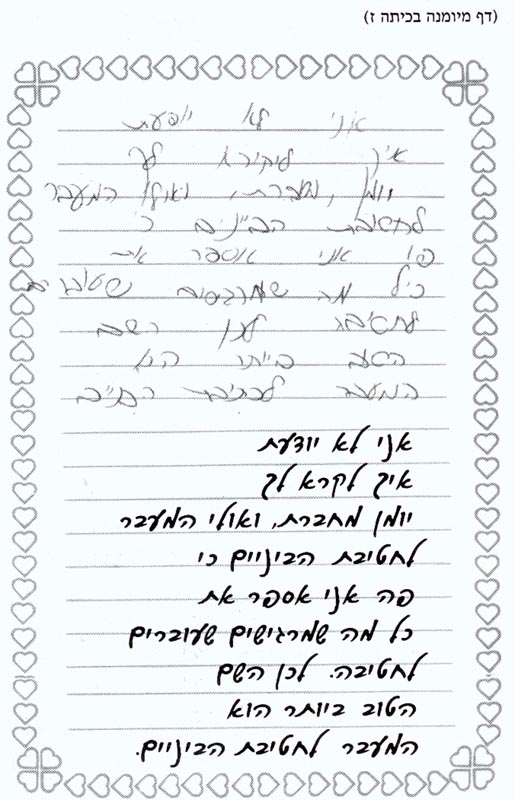 (דף מיומנה בכיתה ז)
אני לא
איך לך
יומן, מחברת, ואולי המעבר
לחטיבת הביינים כי
אני אספר את
מה
לכן
הטוב בייתר הוא
המעבר
אני לא יודעת
איך לקרא לך
יומן מחברת, ואולי המעבר
לחטיבת הביניים כי
פה אני אספר את
כל מה שמרגישים שעוברים
לחטיבה. לכן השם
הטוב ביותר הוא
המעבר לחטיבת הביניים.